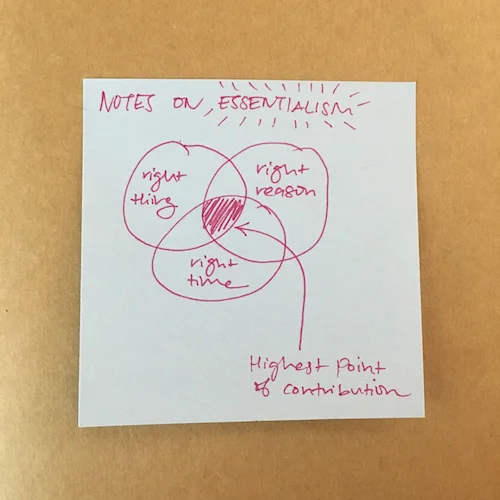 NOTES ON ESSENTIALISM
right
thing
right
reason
right
time
Highest Point
of contribution